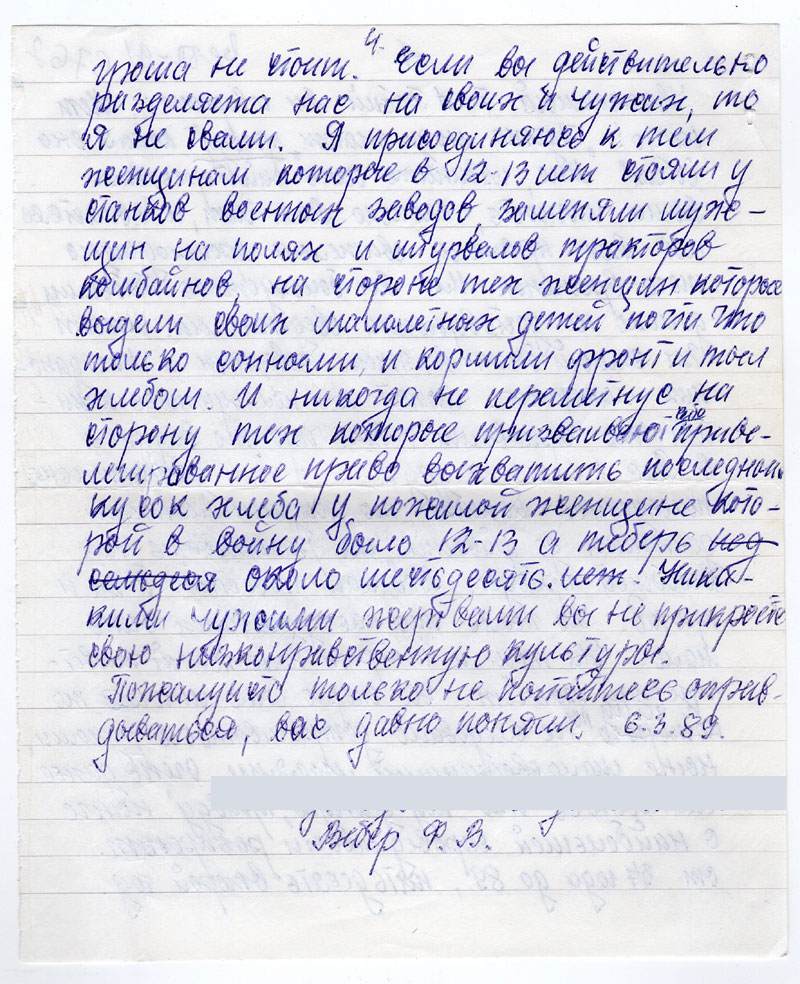 4.
гроша не стоит. Если вы действительно
разделяете нас на своих и чужих, то
я не свами. Я присоединяюсь к тем
женщинам которые в 12-13 лет стояли у
станков военных заводов, заменяли муж-
щин на полях и штурвалов тракторов
комбайнов, на стороне тех женщин которые
видели своих малолетных детей почти что
только сонными, и кормили фронт и тыл
хлебом. И никогда не переметнус на
сторону тех которые призваивают приве-
легированное право выхватить последний
кусок хлеба у пожилой женщине кото-
рой в войну было 12-13 а теперь под
семьдесят около шестьдесять лет. Ника-
кими чужими жертвами вы не прикроете
свою низконравственную культуры.
Пожалуйсто только не пытайтесь оправ-
дываться, вас давно поняли. 6.3.89.
Вебер Ф. В.